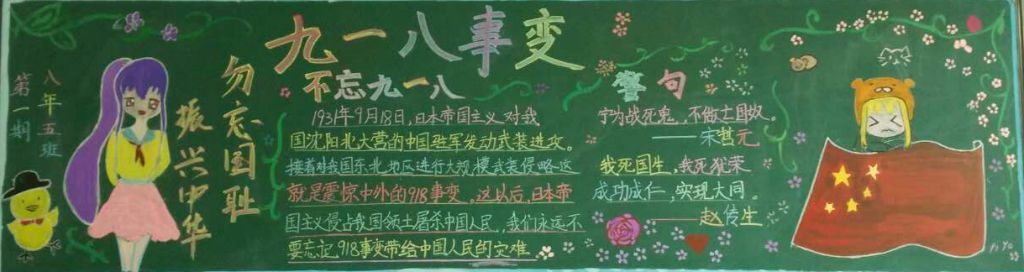 八年五班
第一期
勿忘国耻
振兴中华
九一八事变
不忘九一八
1931年9月18日,日本帝国主义对我
国沈阳北大营的中国驻军发动武装进攻。
接着对我国东北地区进行大规模武装侵略,这
就是震惊中外的918事变。这以后,日本帝
国主义侵占我国领土屠杀中国人民,我们永远不
要忘记,918事变带给中国人民的灾难。
警句
宁为战死鬼,不做亡国奴。
——宋哲元
我死国生,我死犹荣
成功成仁,实现大同
——赵侍生